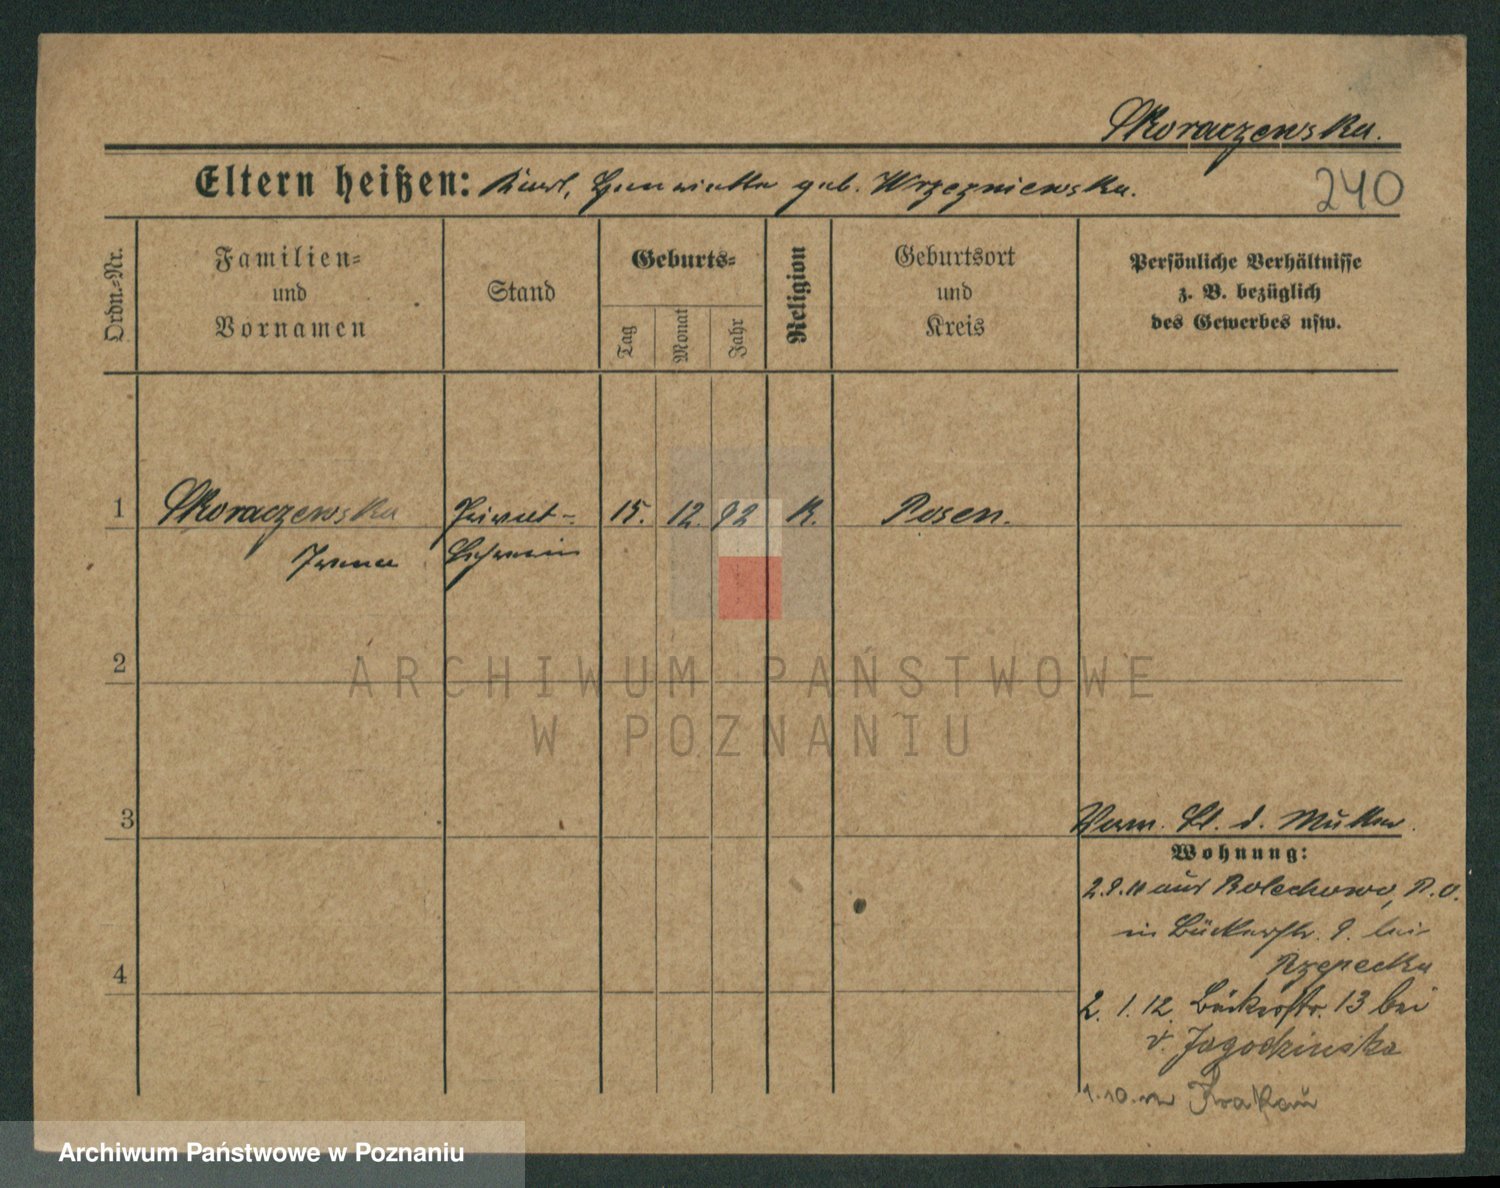 Skoraczewska.
Eltern heißen: Karl, Henriette geb. Wrzezniewska.
240
Ordn.-Nr.
Familien-
und
Vornamen
Stand
Geburts-
Tag
Monat
Jahr
Religion
Geburtsort
und
Kreis
Persönliche Verhältnisse
z. B. bezüglich
des Gewerbes usw.
1 Skoraczewska Privat- 15. 12. 92 K. Posen.
Irena Lehrerin
2
ARCHIWUM PAŃSTWOWE
W POZNANIU
3
Verm. Bl. d. Mutter.
Wohnung:
2.9.11 aus Bolechowo, P.O.
in Bäckerstr. 9. bei
Rzepecka
4
2. 1. 12. Bäckerstr. 13 bei
v. Jagodzinska
1.10. Krakau
Archiwum Państwowe w Poznaniu